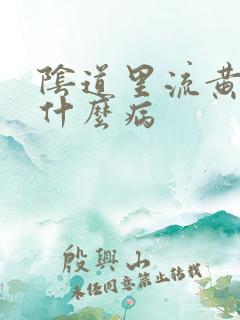 陰道里流黃
什麼病
殷興山
未經同意禁止轉載